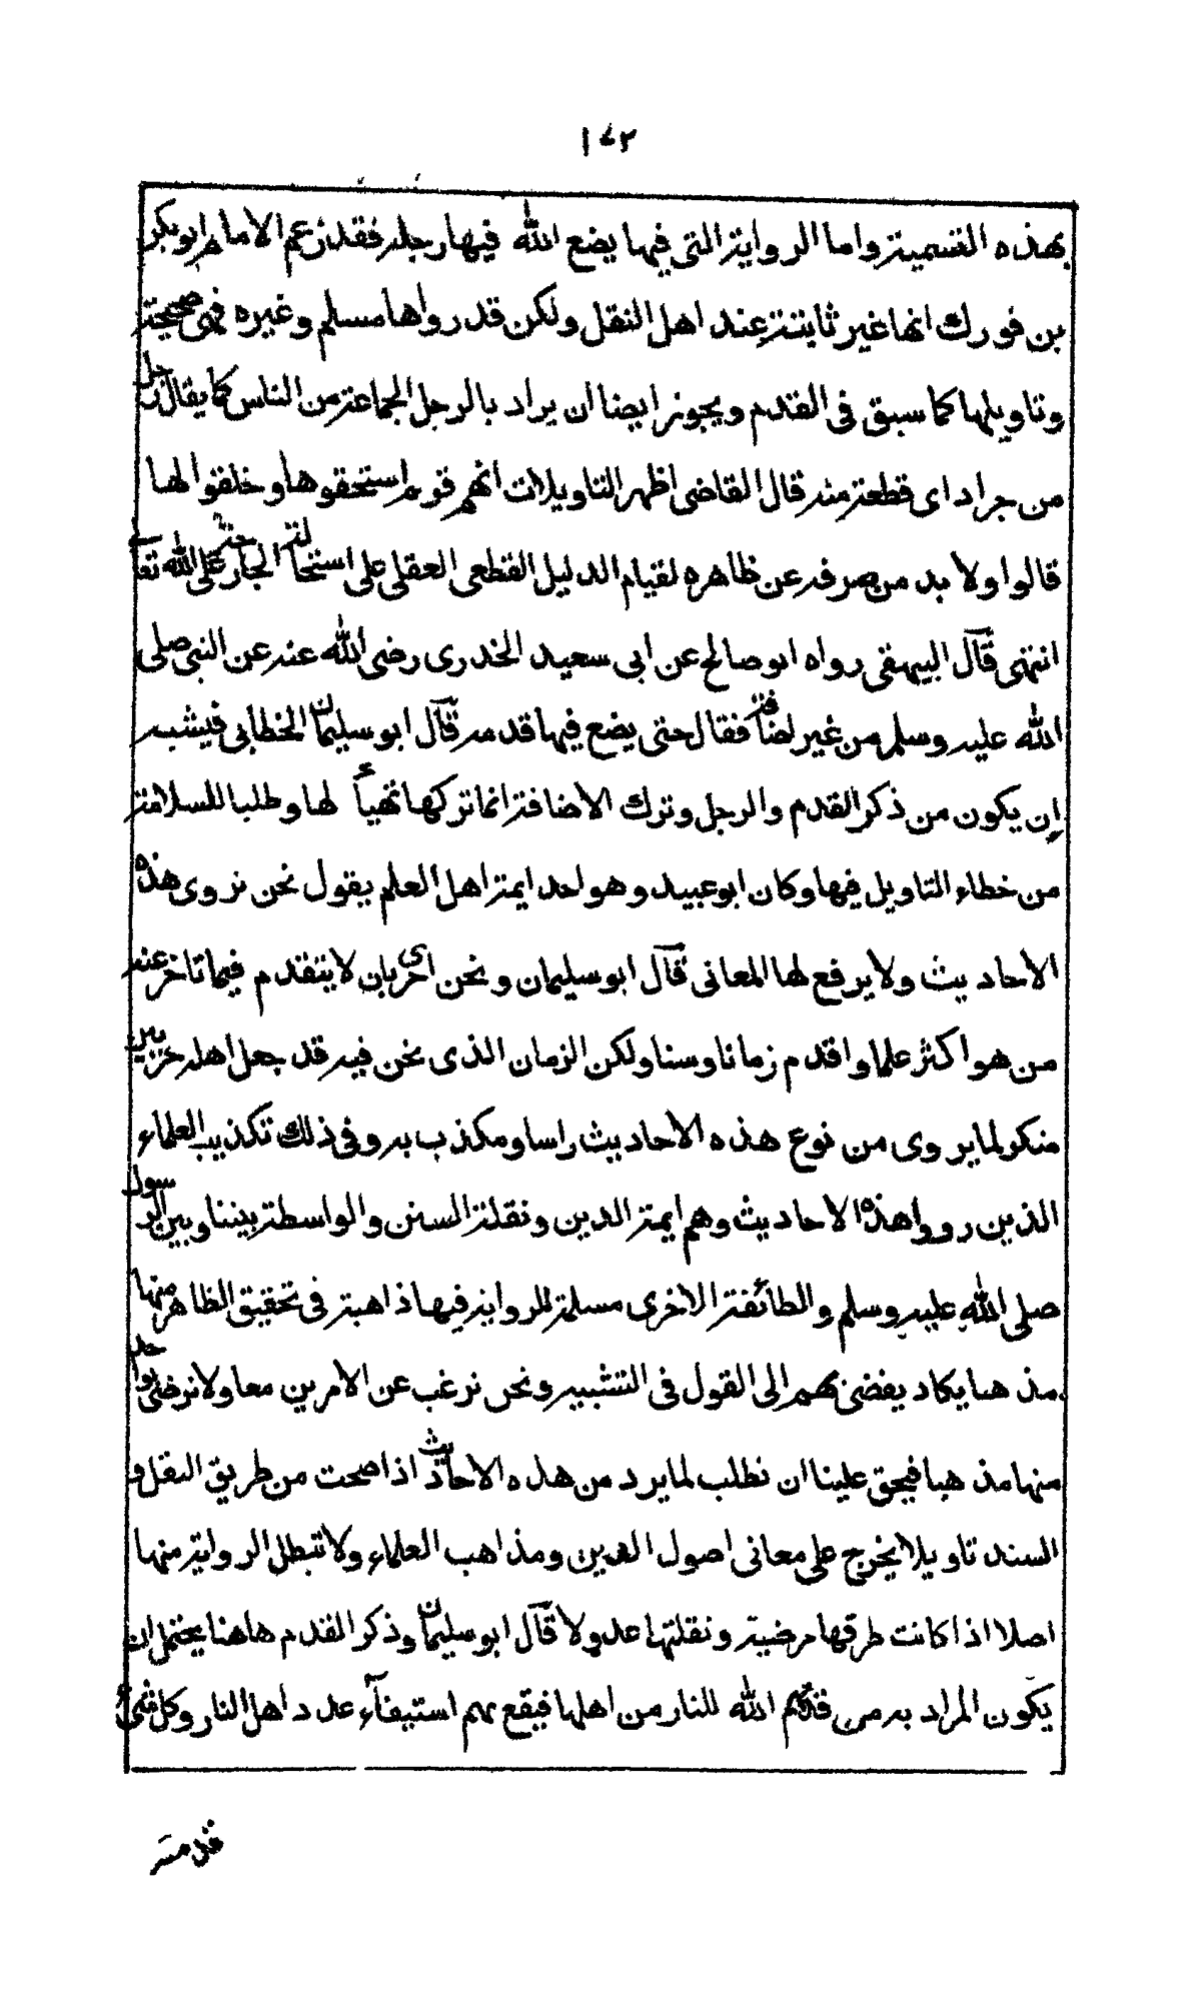 ١٧٢
بهذه التسمية واما الرواية التي فيها يضع الله فيها رجله فقد زعم الامام ابو بكر
بن فورك انها غير ثابتة عند اهل النقل ولكن قد رواها مسلم وغيره فهي صحيحة
وتاويلها كما سبق فى القدم ويجوز ايضا ان يراد بالرجل الجماعة من الناس كما يقال رجل
من جراد اى قطعة منه قال القاضى اظهر التاويلات انهم قوم استحقوها وخلقوا لها
قالوا ولا بد من صرفه عن ظاهره لقيام الدليل القطعى العقلى على استحالة الجارحة على الله تعالى
انتهى قال البيهقى رواه ابو صالح عن ابى سعيد الخدرى رضى الله عنه عن النبى صلى
الله عليه وسلم من غير اضافة فقال حتى يضع فيها قدمه قال ابو سليمان الخطابى فيشبه
ان يكون من ذكر القدم والرجل وترك الاضافة انما تركها تهيأ لها وطلبا للسلامة
من خطاء التاويل فيها وكان ابو عبيد وهو احد ايمة اهل العلم يقول نحن نروى هذه
الاحاديث ولا يرفع لها المعانى قال ابو سليمان ونحن احرى بان لا يتقدم فيما تاخر عنه
من هو اكثر علما واقدم زمانا وسنا ولكن الزمان الذى نحن فيه قد جعل اهله حزبين
منكر لما يروى من نوع هذه الاحاديث راسا ومكذب به وفى ذلك تكذيب العلماء
الذين رووا هذه الاحاديث وهم ايمة الدين ونقلة السنن والواسطة بيننا وبين الرسول
صلى الله عليه وسلم والطائفة الاخرى مسلمة للرواية فيها ذاهبة فى تحقيق الظاهر منها
مذهبا يكاد يفضى بهم الى القول فى التشبيه ونحن نرغب عن الامرين معا ولا نرضى بواحد
منها مذهبا فيحق علينا ان نطلب لما يرد من هذه الاحاديث اذا صحت من طريق النقل و
السند تاويلا يخرج على معانى اصول الدين ومذاهب العلماء ولا تبطل الرواية منها
اصلا اذا كانت طرقها مرضية ونقلتها عدولا قال ابو سليمان وذكر القدم هاهنا يحتمل ان
يكون المراد به من قدمهم الله للنار من اهلها فيقع بهم استيفآء عدد اهل النار وكل شئ
قدمته